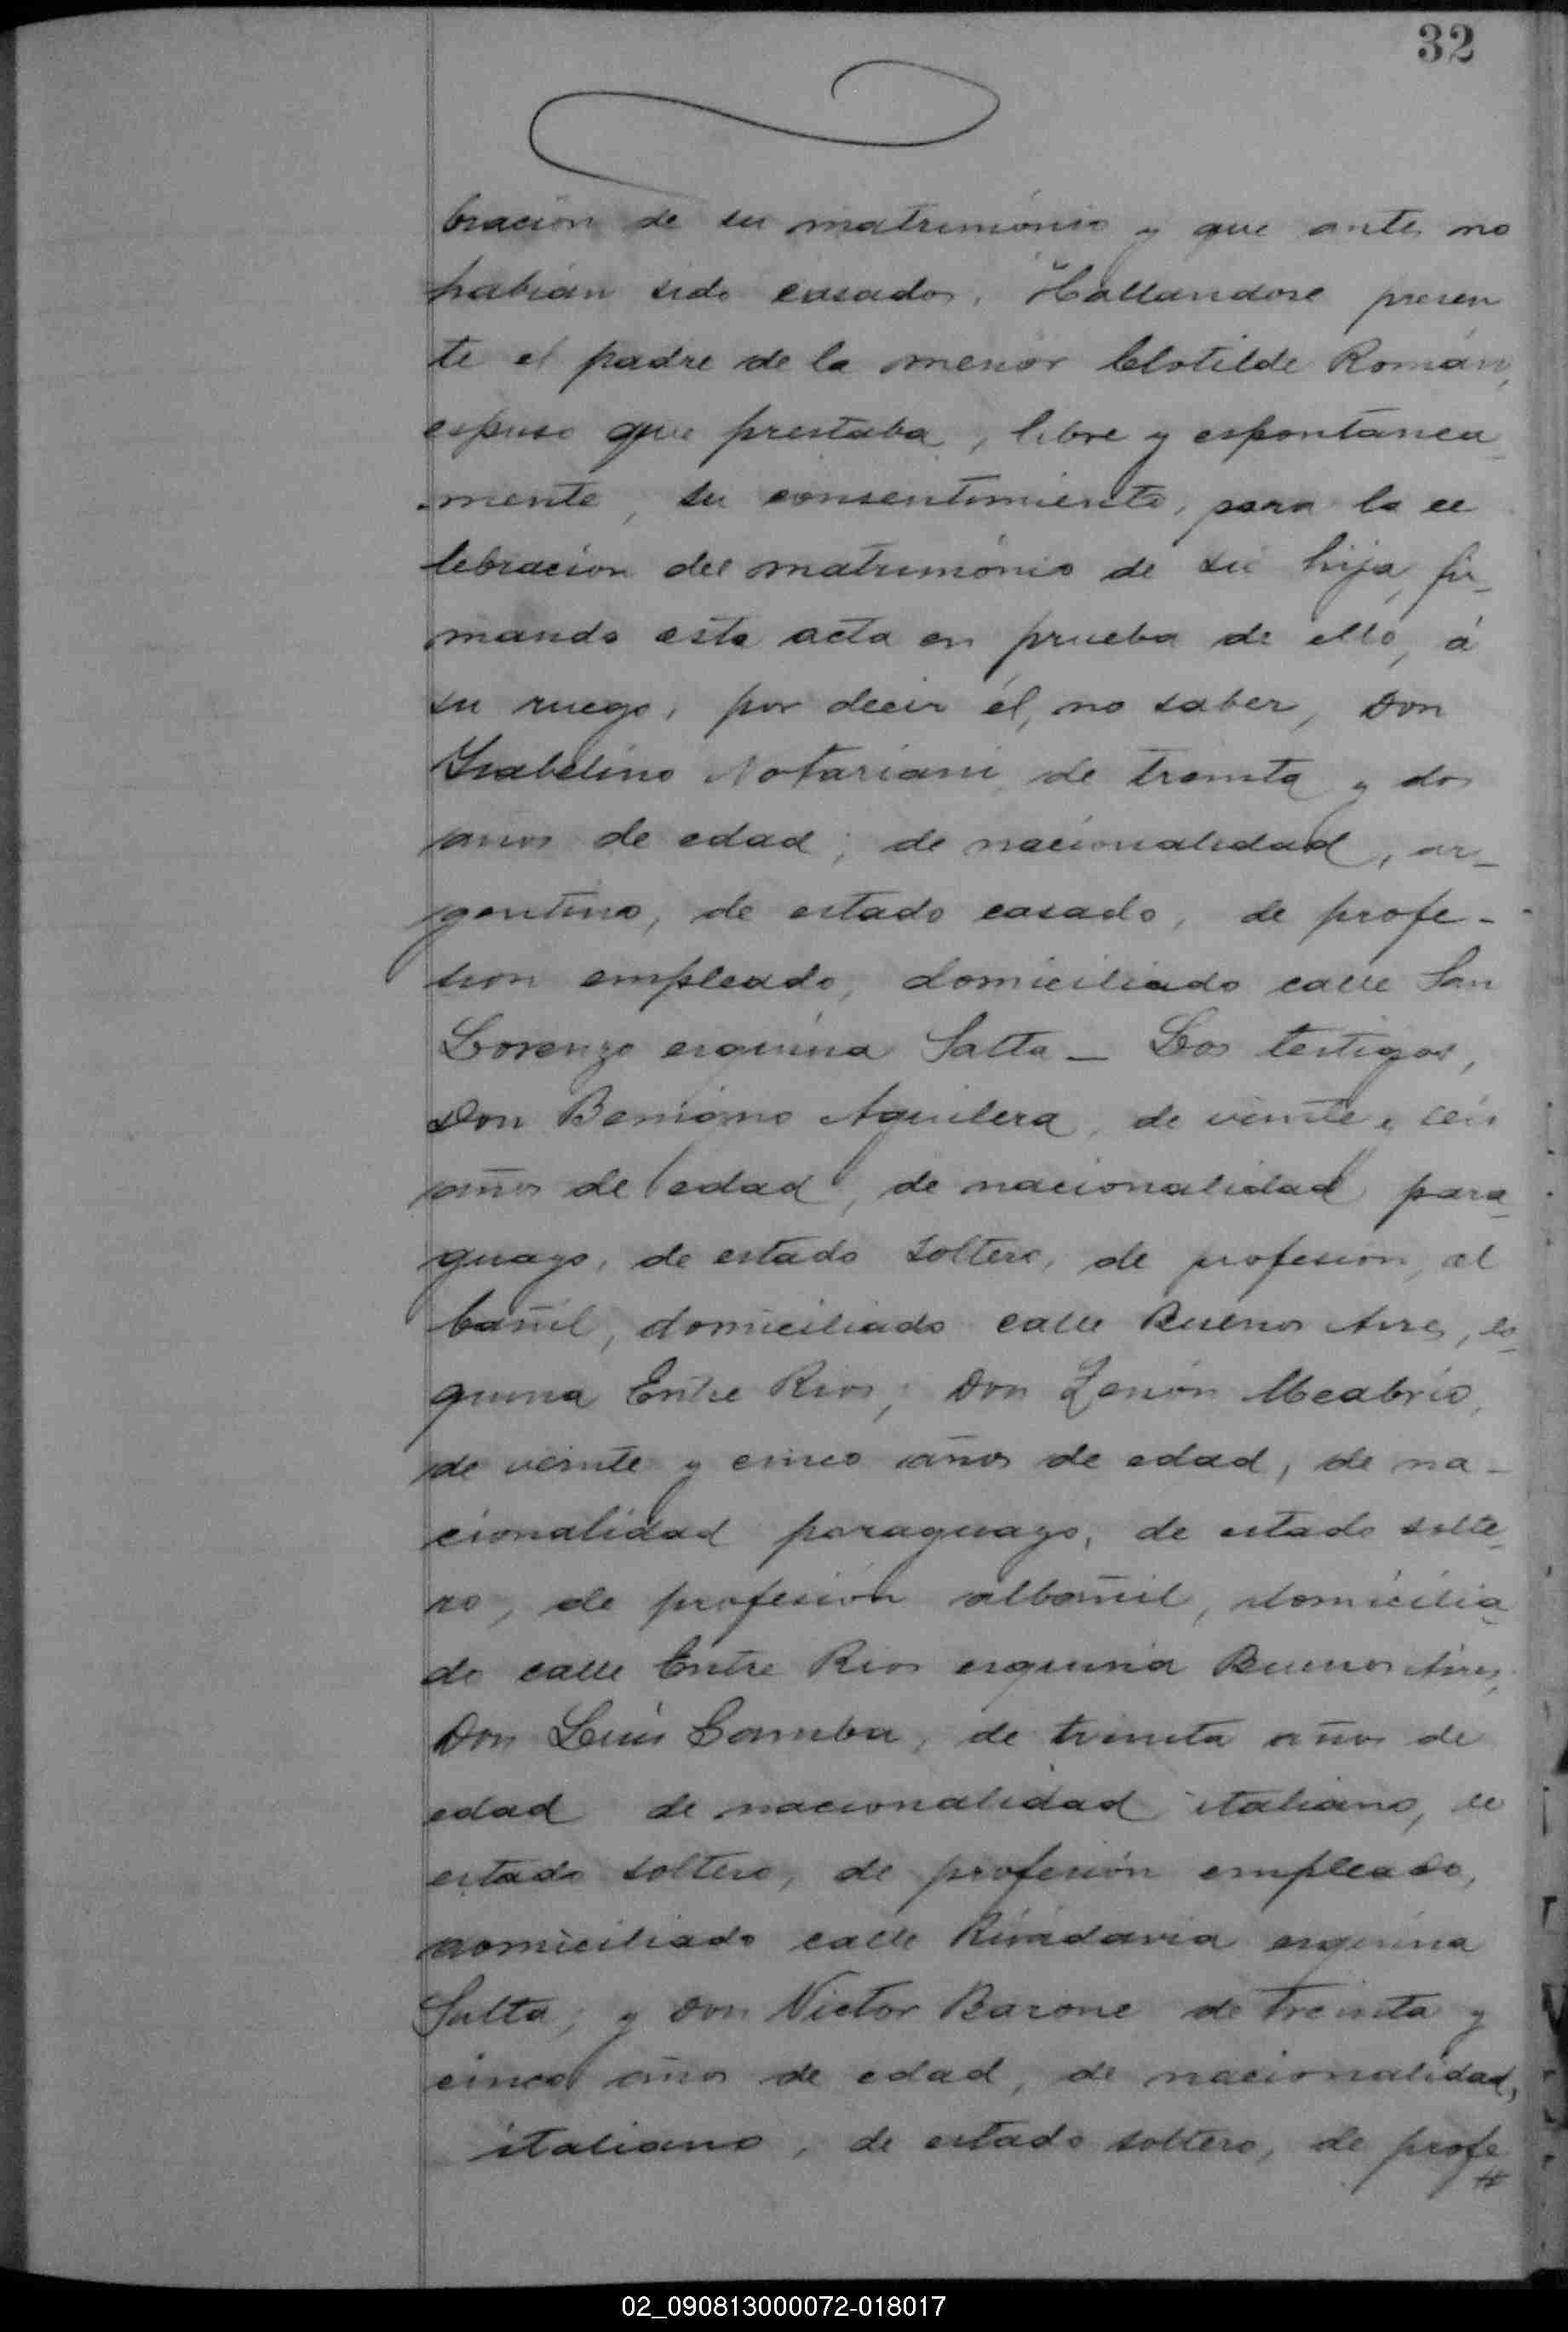 32
bración de su matrimónio y que antes no
habian sido casados. Hallandose presen
te el padre de la menor Clotilde Román,
espuso que prestaba, libre y espontanea_
mente, su consentimiento, para la ce
lebracion del matrimónio de su hija, fir_
mando esta acta en prueba de ello, á
su ruego, por decir él, no saber, Don
Ysabelino Notariani de treinta y dos
años de edad, de nacionalidad, ar_
gentino, de estado casado, de profe-
sion empleado, domiciliado calle San
Lorenzo esquina Salta _ Los testigos,
Don Benigno Aguilera, de veinte y seis
años de edad, de nacionalidad para_
guayo, de estado soltero, de profesion, al
bañil, domiciliado calle Buenos Aires, es_
quina Entre Rios, Don Zenón Meabrio,
de veinte y cinco años de edad, de na_
cionalidad paraguayo, de estado solte_
ro, de profesión albañil, domicilia_
do calle Entre Rios esquina Buenos Aires,
Don Luis Camba, de treinta años de
edad de nacionalidad italiano, de
estado soltero, de profesión empleado,
domiciliado calle Rivadavia esquina
Salta, y Don Victor Barone de treinta y
cinco años de edad, de nacionalidad,
italiano, de estado soltero, de profe
02_090813000072-018017